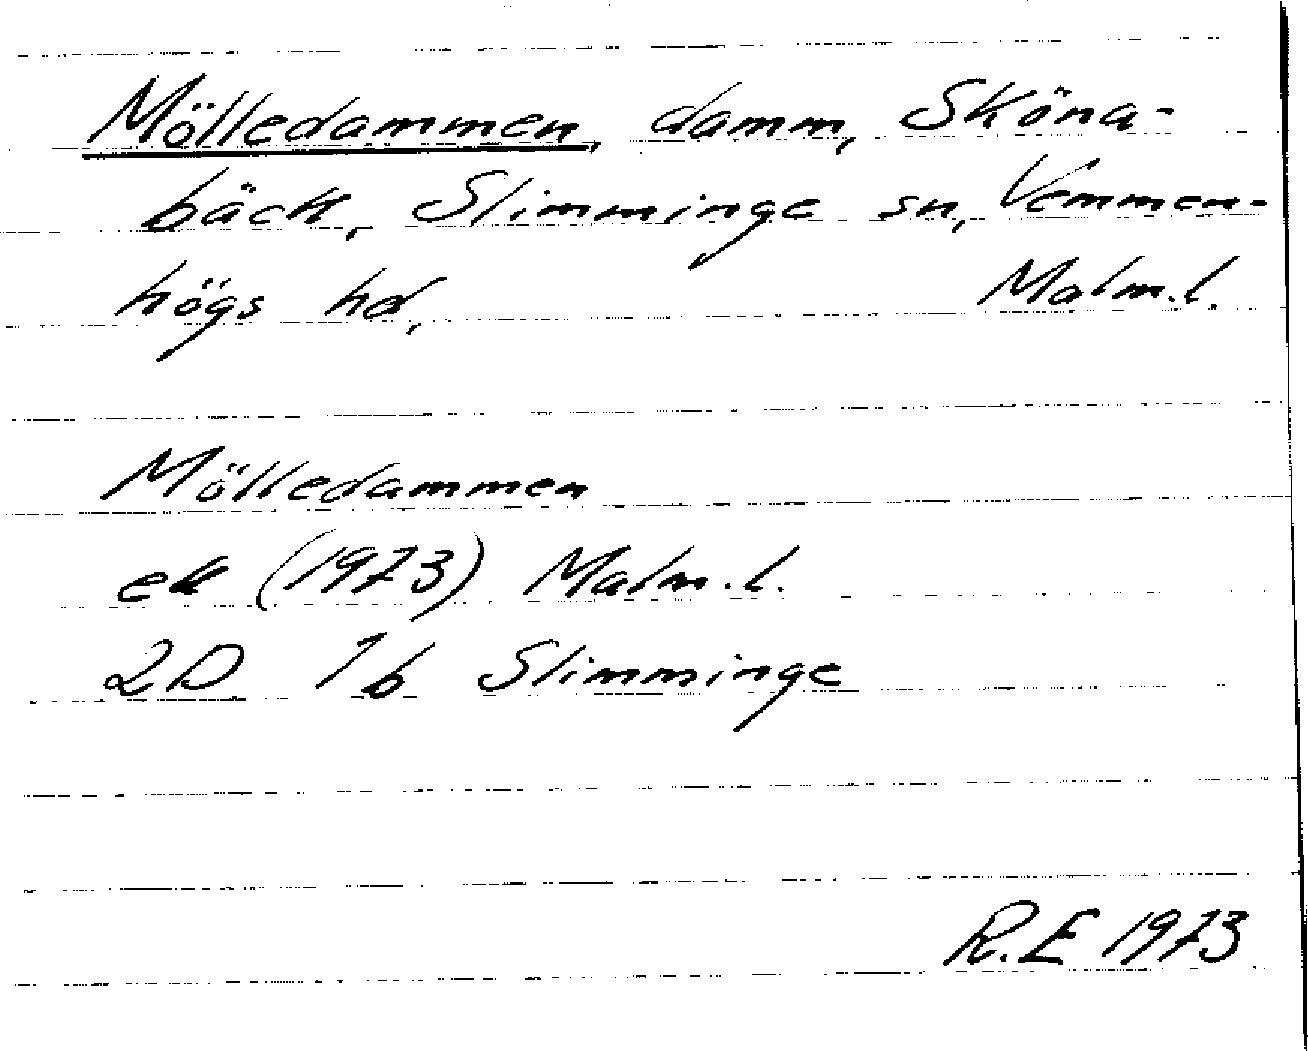 Mölledammen, damm, Sköna-
bäck, Slimminge sn, Vemmen-
högs hd, Malm.l.
Mölledammen
ek (1973) Malm.l.
2D 7b Slimminge
R.E 1973